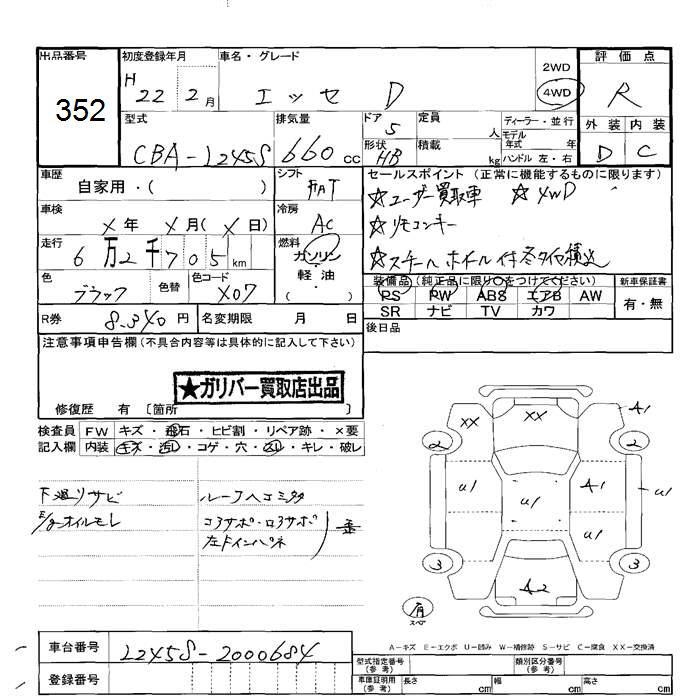 出品番号
352
初度登録年月
H 22年 2月
車名・グレード
エッセ D
2WD
4WD
評価点
R
外装 内装
D C
型式
CBA-L245S
排気量
660 cc
ドア
5
形状
HB
定員
人
積載
kg
ディーラー・並行
モデル年式 年
ハンドル 左・右
車歴
自家用・( )
シフト
FAT
車検
X年 X月(X日)
冷房
AC
走行
6万2千705km
燃料
ガソリン
軽油
( )
色
ブラック
色替
色コード
X07
R券
8,340円
名変期限 月 日
セールスポイント(正常に機能するものに限ります)
☆ユーザー買取車 ☆4WD
☆リモコンキー
☆スチールホイール付冬タイヤ積込
装備品(純正品に限り○をつけてください)
PS PW ABS エアB AW
SR ナビ TV カワ
新車保証書
有・無
後日品
注意事項申告欄(不具合内容等は具体的に記入して下さい)
★ガリバー買取店出品
修復歴 有 [箇所 ]
検査員記入欄
FW キズ・飛石・ヒビ割・リペア跡・×要
内装 キズ・汚レ・コゲ・穴・スレ・キレ・破レ
下廻リサビ
E/gオイルモレ
ルーフヘコミ多
コアサポ・ロアサポ
左ドインパネ
歪
XX
XX
A1
2
2
U1
U1
A1
U1
U1
3
3
A2
有
スペア
A-キズ E-エクボ U-凹み W-補修跡 S-サビ C-腐食 XX-交換済
車台番号
L245S-2000684
登録番号
型式指定番号(参考)
類別区分番号(参考)
車庫証明用(参考) 長さ cm 幅 cm 高さ cm